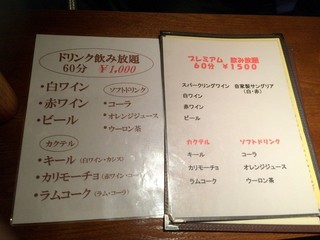 ドリンク飲み放題
60分 ¥1,000
・白ワイン
・赤ワイン
・ビール
ソフトドリンク
・コーラ
・オレンジジュース
・ウーロン茶
カクテル
・キール(白ワイン・カシス)
・カリモーチョ(赤ワイン・コーラ)
・ラムコーク(ラム・コーラ)
プレミアム 飲み放題
60分 ¥1500
スパークリングワイン 自家製サングリア
(白・赤)
白ワイン
赤ワイン
ビール
カクテル
キール
カリモーチョ
ラムコーク
ソフトドリンク
コーラ
オレンジジュース
ウーロン茶